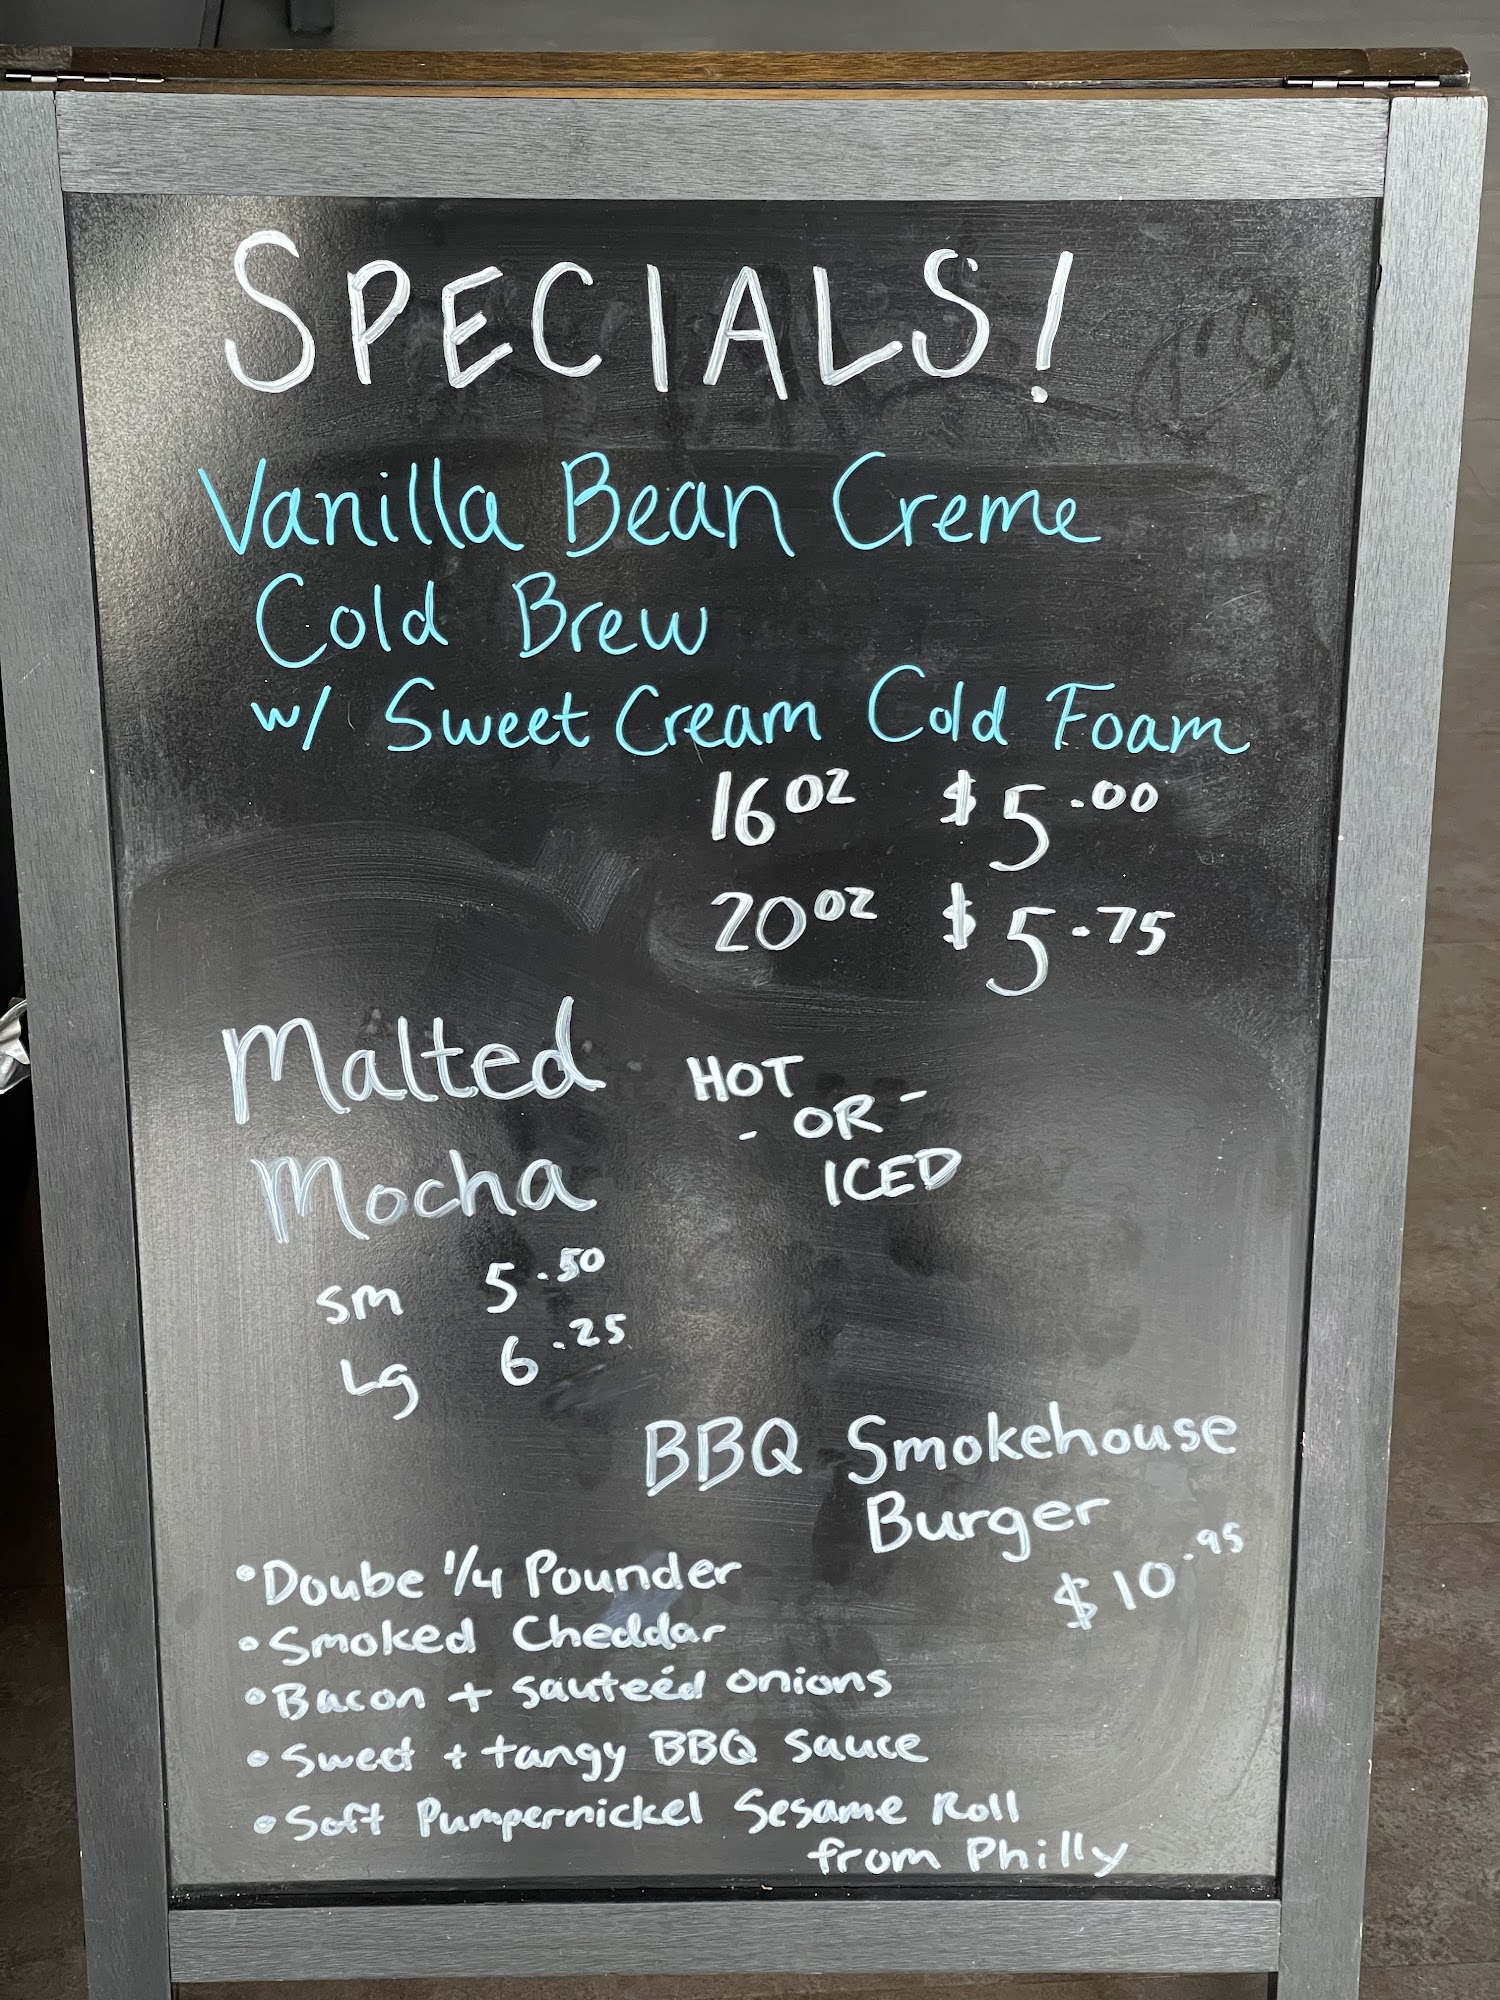 SPECIALS!
Vanilla Bean Creme
Cold Brew
w/ Sweet Cream Cold Foam
16oz $5.00
20oz $5.75
Malted
Mocha
HOT
- OR -
ICED
sm 5.50
Lg 6.25
BBQ Smokehouse
Burger
$10.95
• Doube 1/4 Pounder
• Smoked Cheddar
• Bacon + sauteéd onions
• Sweet + tangy BBQ Sauce
• Soft Pumpernickel Sesame Roll
from Philly